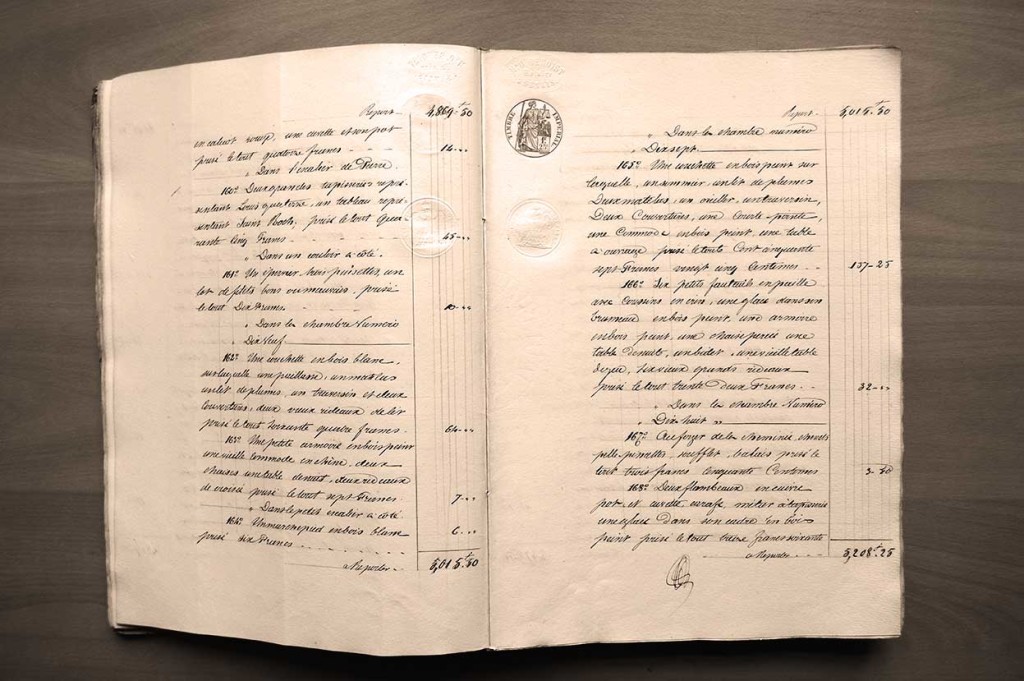 Report 4,869f 50
en caleur rouge, une cuvette et son pot
prisé le tout quatorze francs 14 "
" Dans l'escalier de Pierre.
160° Deux grandes tapisseries repré-
sentant Louis quatorze, un tableau repré-
sentant Saint Roch, prisé le tout Qua-
rante Cinq Francs 45 "
" Dans un couloir à côté
161° Un épervier, trois puisettes, un
lot de filets bons ou mauvais, prisé
le tout Dix Francs 10 "
" Dans la chambre Numéro
Dix Neuf
162° Une couchette en bois blanc,
sur laquelle une paillasse, un matelas
un lit de plumes, un traversin et deux
couvertures, deux vieux rideaux de lit
prisé le tout soixante quatre francs 64 "
163° Une petite armoire en bois peint
une vieille commode en chêne, deux
chaises une table de nuit, deux rideaux
de croisée prisé le tout sept Francs 7 "
" Dans le petit escalier à côté
164° Un marchepied en bois blanc
prisé six Francs 6 "
A Reporter 5,015f 50
TIMBRE IMPERIAL
Report 5,015f 50
" Dans la chambre numéro
Dix sept.
165° Une couchette en bois peint sur
laquelle, un sommier, un lit de plumes
Deux matelas, un oreiller, un traversin,
Deux Couvertures, une Courte-pointe,
une Commode en bois peint, une table
à ouvrage prisé le tout Cent cinquante
sept Francs vingt cinq Centimes 157-25
166° Six petits fauteuils en paille
avec Coussins en crin, une glace dans son
trumeau en bois peint, une armoire
en bois peint, une chaise percée une
table de nuit, un bidet, une vieille table
de jeu, six vieux grands rideaux
prisé le tout trente deux Francs 32 "
" Dans la chambre Numéro
Dix huit "
167° Au foyer de la cheminée, chenets
pelle-pincettes, soufflet, balais prisé le
tout trois francs cinquante Centimes 3 50
168° Deux flambeaux en cuivre
pot, et cuvette carafe,
une glace dans son cadre en bois
peint prisé le tout francs soixante
A Reporter 5,208f 25